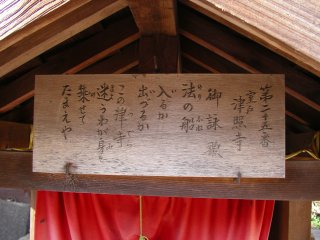 第二十五番
室戸 津照寺
御詠歌
法の船
のり ふね
入るか
出づるか
この津寺
迷ふ我が身を
乗せて
たまえや